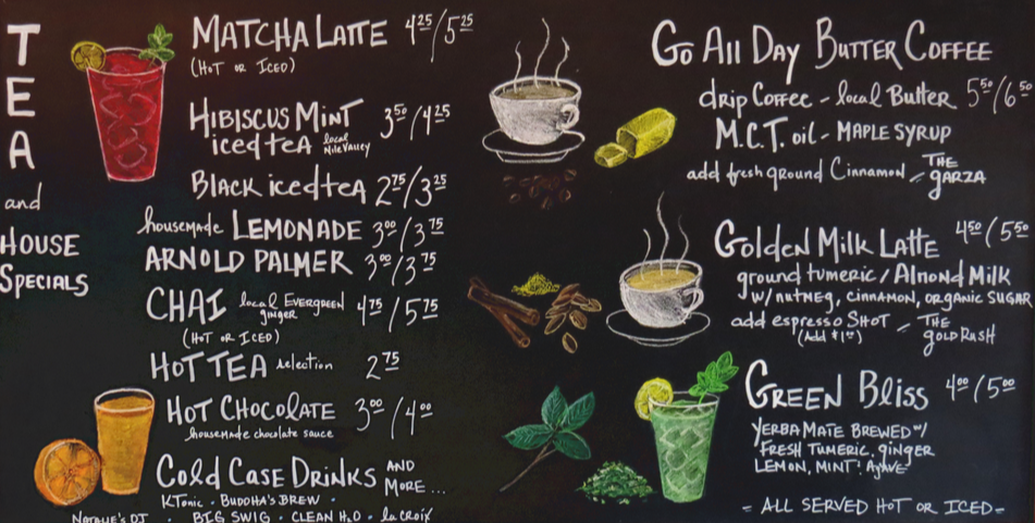 TEA
and
HOUSE
SPECIALS
MATCHA LATTE 4.25/5.25
(HOT OR ICED)
HIBISCUS MINT 3.50/4.25
iced tea local Nile Valley
BLACK iced tea 2.75/3.25
housemade LEMONADE 3.00/3.75
ARNOLD PALMER 3.00/3.75
CHAI local EVERGREEN ginger 4.75/5.75
(HOT OR ICED)
HOT TEA selection 2.75
HOT CHOCOLATE 3.00/4.00
housemade chocolate sauce
Cold Case Drinks AND MORE...
KTonic · BUDDHA'S BREW ·
NATALIE'S OJ · BIG SWIG · CLEAN H2O · la CROIX
GO ALL DAY BUTTER COFFEE
drip Coffee - local Butter 5.50/6.50
M.C.T. oil - MAPLE SYRUP
add fresh ground Cinnamon - THE GARZA
Golden Milk Latte 4.50/5.50
ground tumeric/Almond Milk
w/ nutmeg, cinnamon, organic sugar
add espresso SHOT - THE GOLD RUSH
(Add $1.00)
GREEN Bliss 4.00/5.00
YERBA MATE BREWED w/
FRESH TUMERIC, GINGER
LEMON, MINT! AGAVE
- ALL SERVED HOT OR ICED -